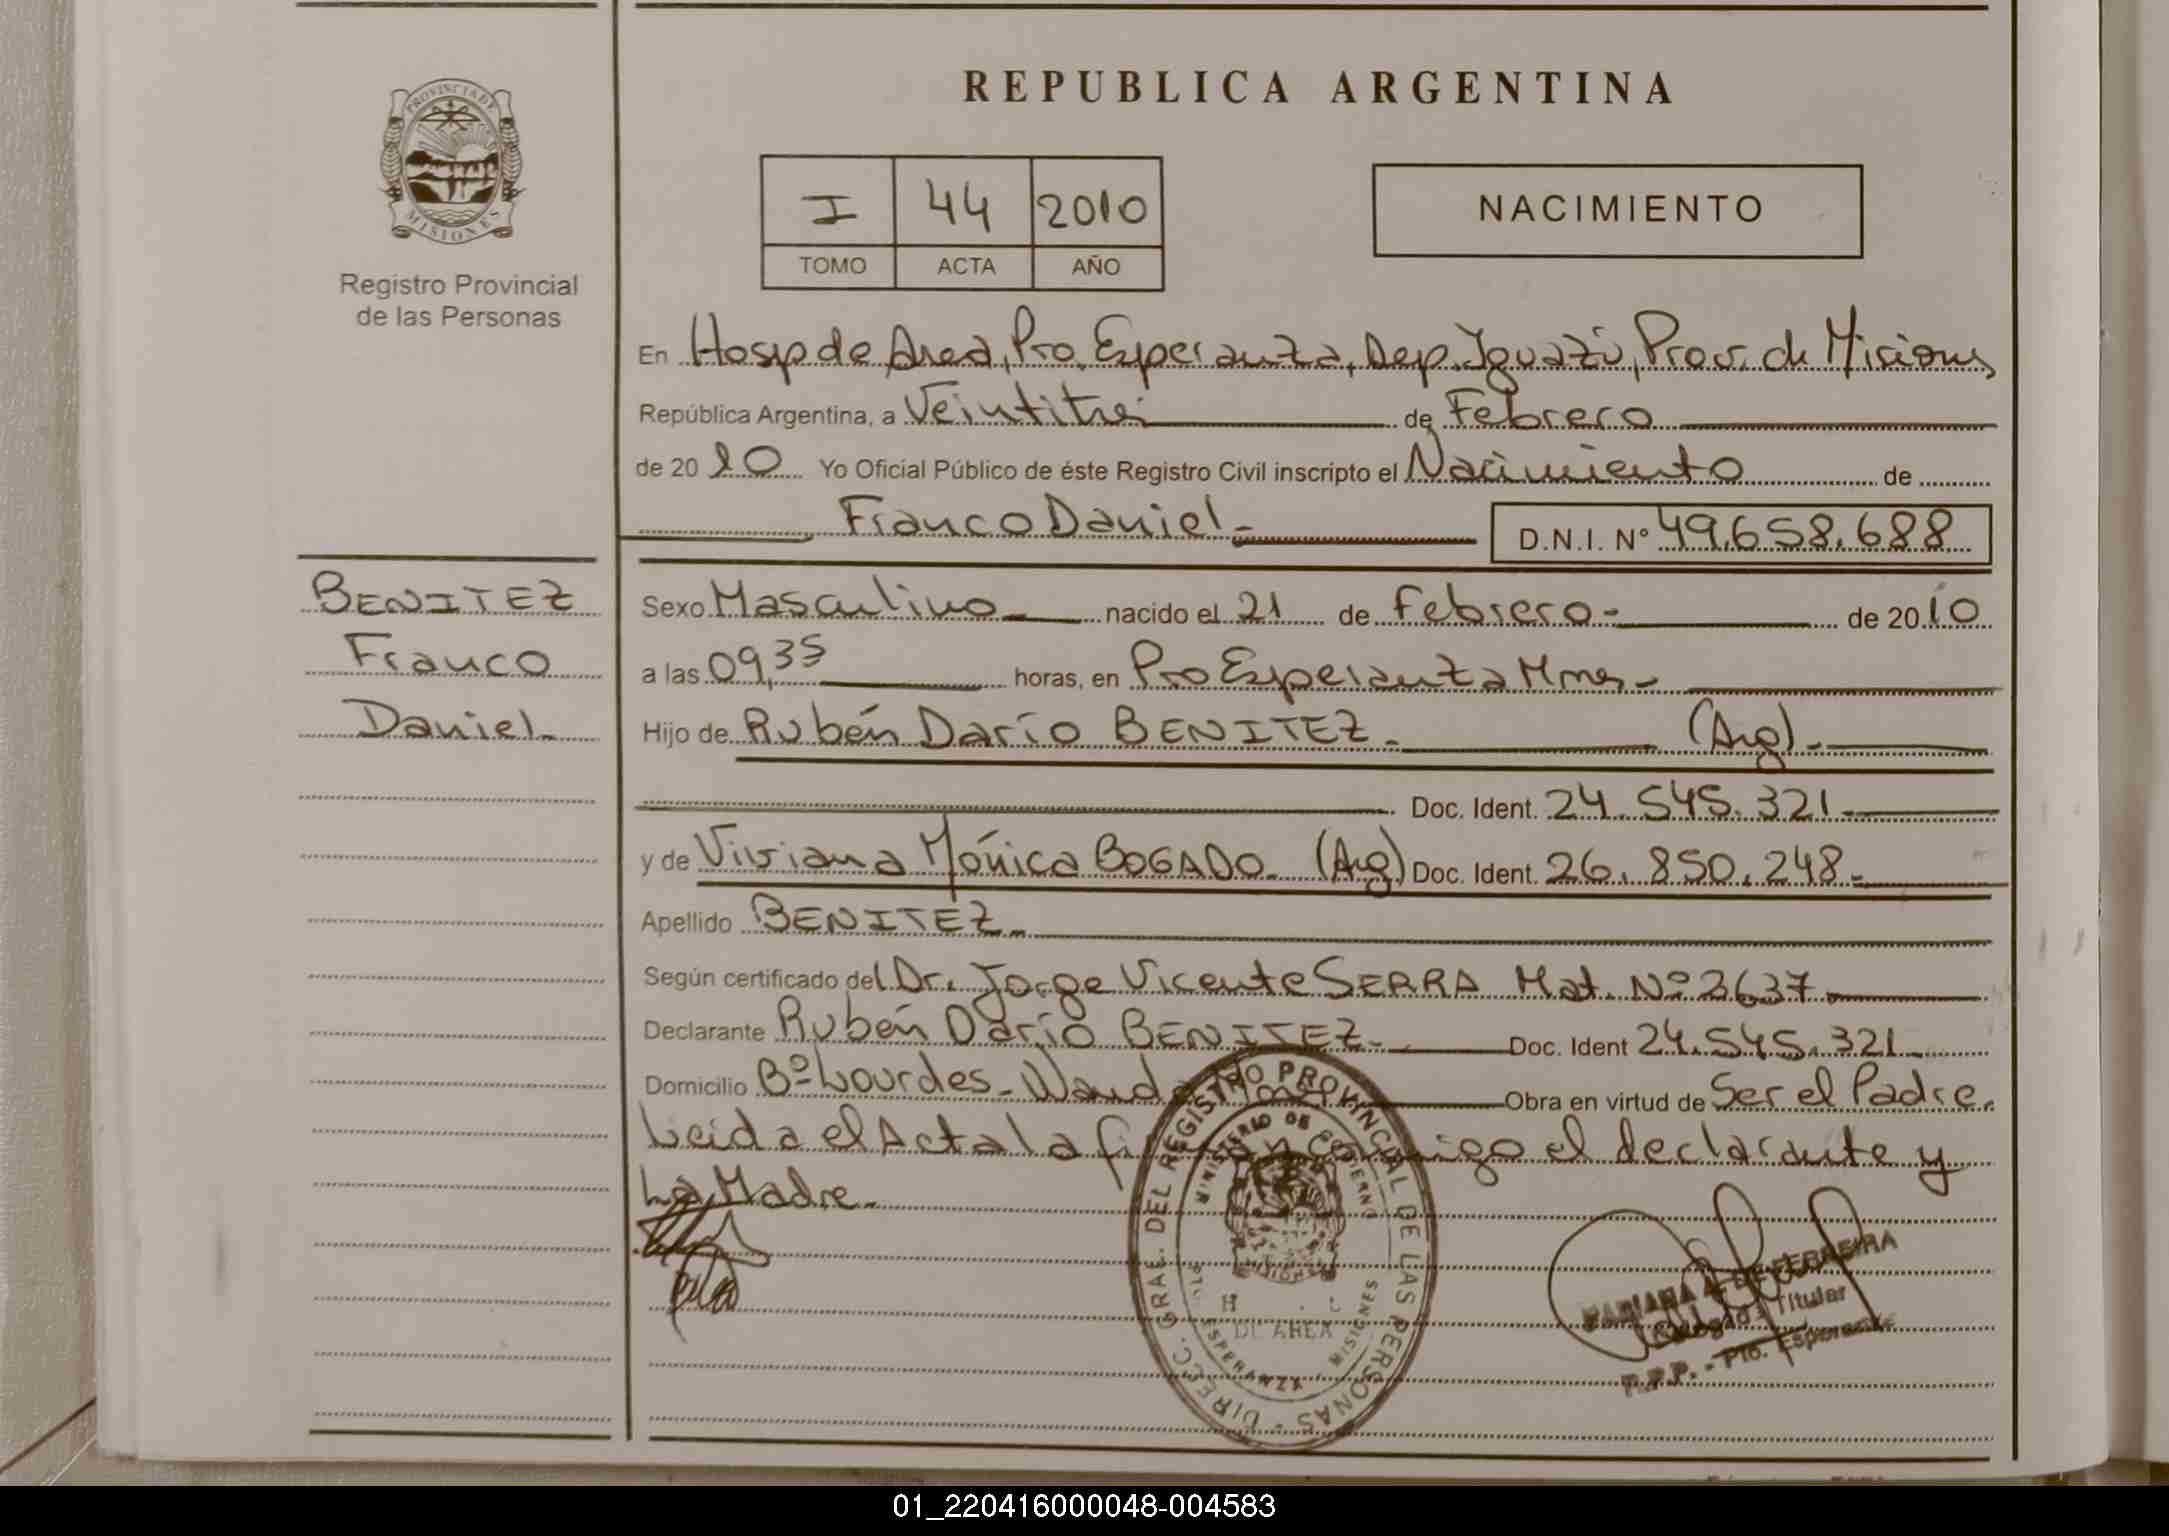 PROVINCIA DE
MISIONES
Registro Provincial
de las Personas
REPUBLICA ARGENTINA
I 44 2010
TOMO ACTA AÑO
NACIMIENTO
En Hosp de Area, Pto. Esperanza, Dep. Iguazú, Prov. de Misiones,
República Argentina, a Veintitres de Febrero
de 20 10 Yo Oficial Público de éste Registro Civil inscripto el Nacimiento de
Franco Daniel.- D.N.I. N° 49.658.688
BENITEZ
Franco
Daniel.-
Sexo Masculino nacido el 21 de Febrero- de 2010
a las 09,35 horas, en Pto Esperanza Mnes.-
Hijo de Rubén Darío BENITEZ.- (Arg).-
Doc. Ident. 24.545.321.-
y de Viviana Mónica BOGADO.- (Arg) Doc. Ident. 26.850.248.-
Apellido BENITEZ.-
Según certificado del Dr. Jorge Vicente SERRA Mat. Nº 3637.-
Declarante Rubén Darío BENITEZ.- Doc. Ident 24.545.321.-
Domicilio Bº Lourdes - Wanda Obra en virtud de Ser el Padre.
Leida el Acta la firman conmigo el declarante y
La Madre.-
DIRECC. GRAL. DEL REGISTRO PROVINCIAL DE LAS PERSONAS -
MINISTERIO DE GOBIERNO
MISIONES
DE AREA
ESPERANZA MISIONES
MARIANA A. DE FERREIRA
Delegada Titular
R.P.P. - Pto. Esperanza
01_220416000048-004583